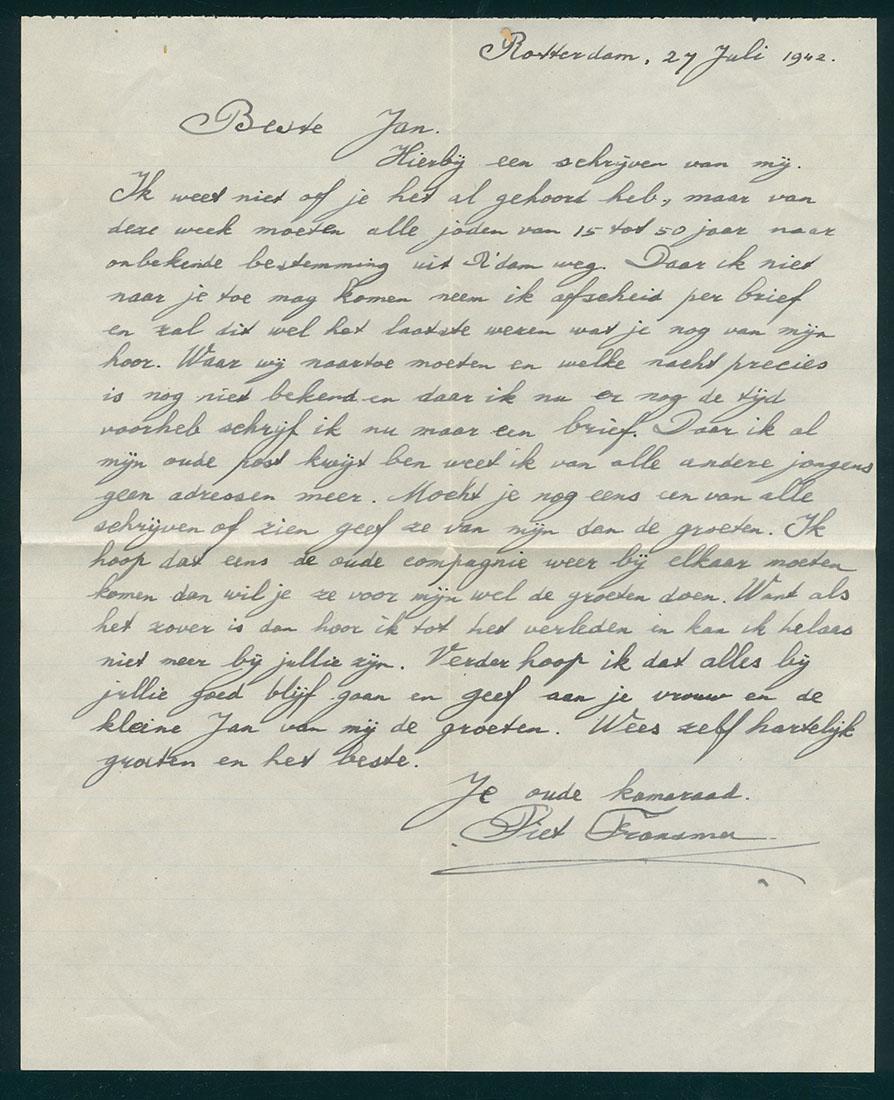 Rotterdam, 27 Juli 1942.
Beste Jan.
Hierbij een schrijven van mij.
Ik weet niet off je het al gehoord heb, maar van
deze week moeten alle joden van 15 tot 50 jaar naar
onbekende bestemming uit R'dam weg. Daar ik niet
naar je toe mag komen neem ik afscheid per brief
en zal dit wel het laatste wezen wat je nog van mijn
hoor. Waar wij naartoe moeten en welke nacht precies
is nog niet bekend en daar ik nu er nog de tijd
voorheb schrijf ik nu maar een brief. Daar ik al
mijn oude post kwijt ben weet ik van alle andere jongens
geen adressen meer. Mocht je nog eens een van alle
schrijven of zien geef ze van mijn dan de groeten. Ik
hoop dat eens de oude compagnie weer bij elkaar moeten
komen dan wil je ze voor mijn wel de groeten doen. Want als
het zover is dan hoor ik tot het verleden en kan ik helaas
niet meer bij jullie zijn. Verder hoop ik dat alles bij
jullie goed blijf gaan en geef aan je vrouw en de
kleine Jan van mij de groeten. Wees zelf hartelijk
groeten en het beste.
Je oude kameraad.
Piet Fransman